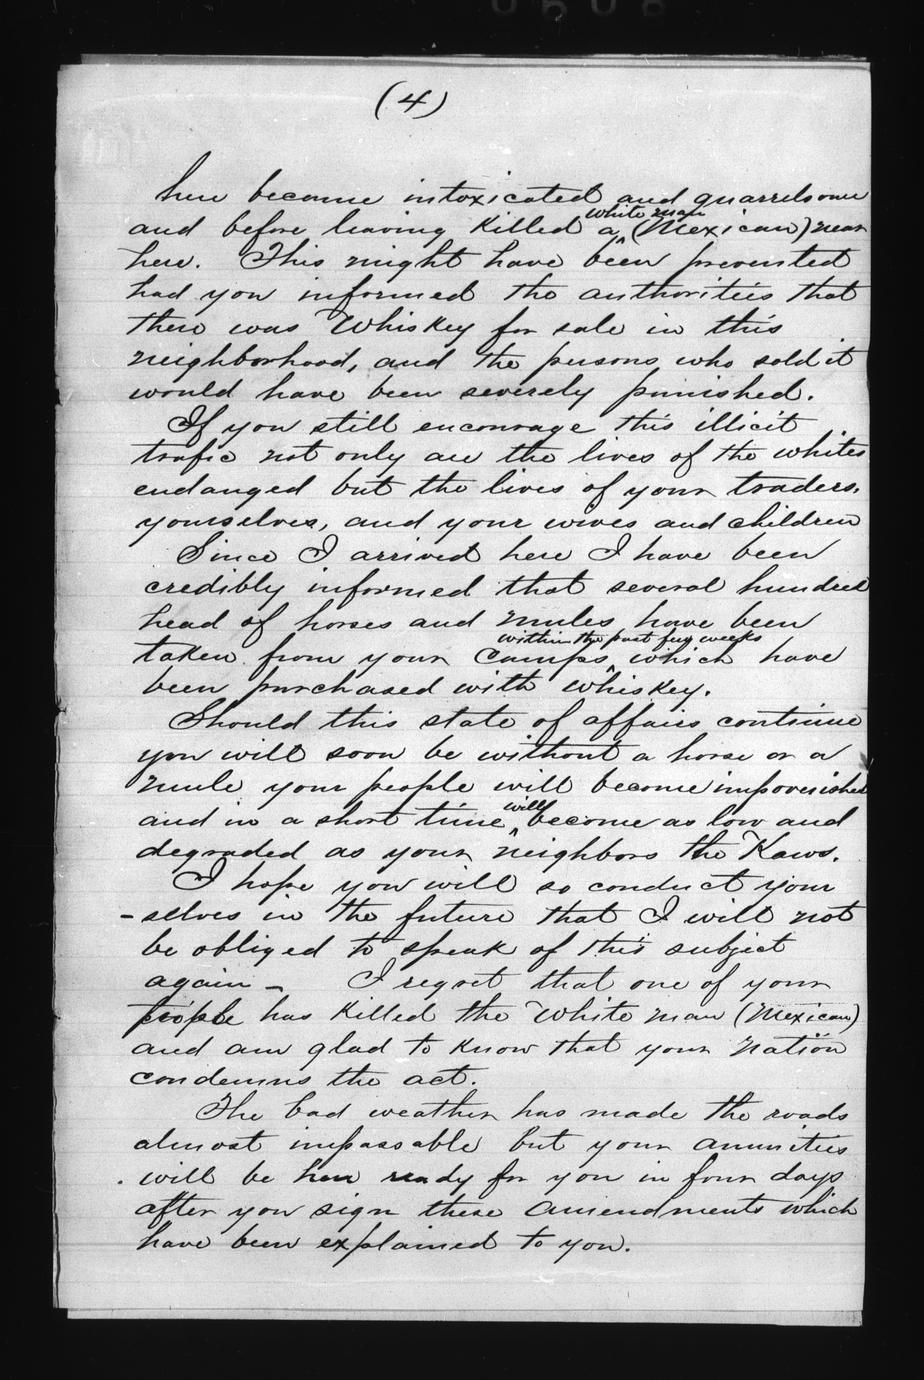 (4)
here became intoxicated and quarrelsome
white man
and before leaving killed a ^ (Mexican) near
here. This might have been prevented
had you informed the authorities that
there was Whiskey for sale in this
neighborhood, and the persons who sold it
would have been severely punished.
If you still encourage this illicit
trafic not only are the lives of the whites
endanged but the lives of your traders,
yourselves, and your wives and children
Since I arrived here I have been
credibly informed that several hundred
head of horses and mules have been
within the past few weeks
taken from your camps ^ which have
been purchased with whiskey.
Should this state of affairs continue
you will soon be without a horse or a
mule your people will become impoverished
will
and in a short time, ^ become as low and
degraded as your neighbors the Kaws.
I hope you will so conduct your
-selves in the future that I will not
be obliged to speak of this subject
again - I regret that one of your
people has killed the White man (Mexican)
and am glad to know that your nation
condemns the act.
The bad weather has made the roads
almost impassable but your annuities
will be here ready for you in four days
after you sign these amendments which
have been explained to you.